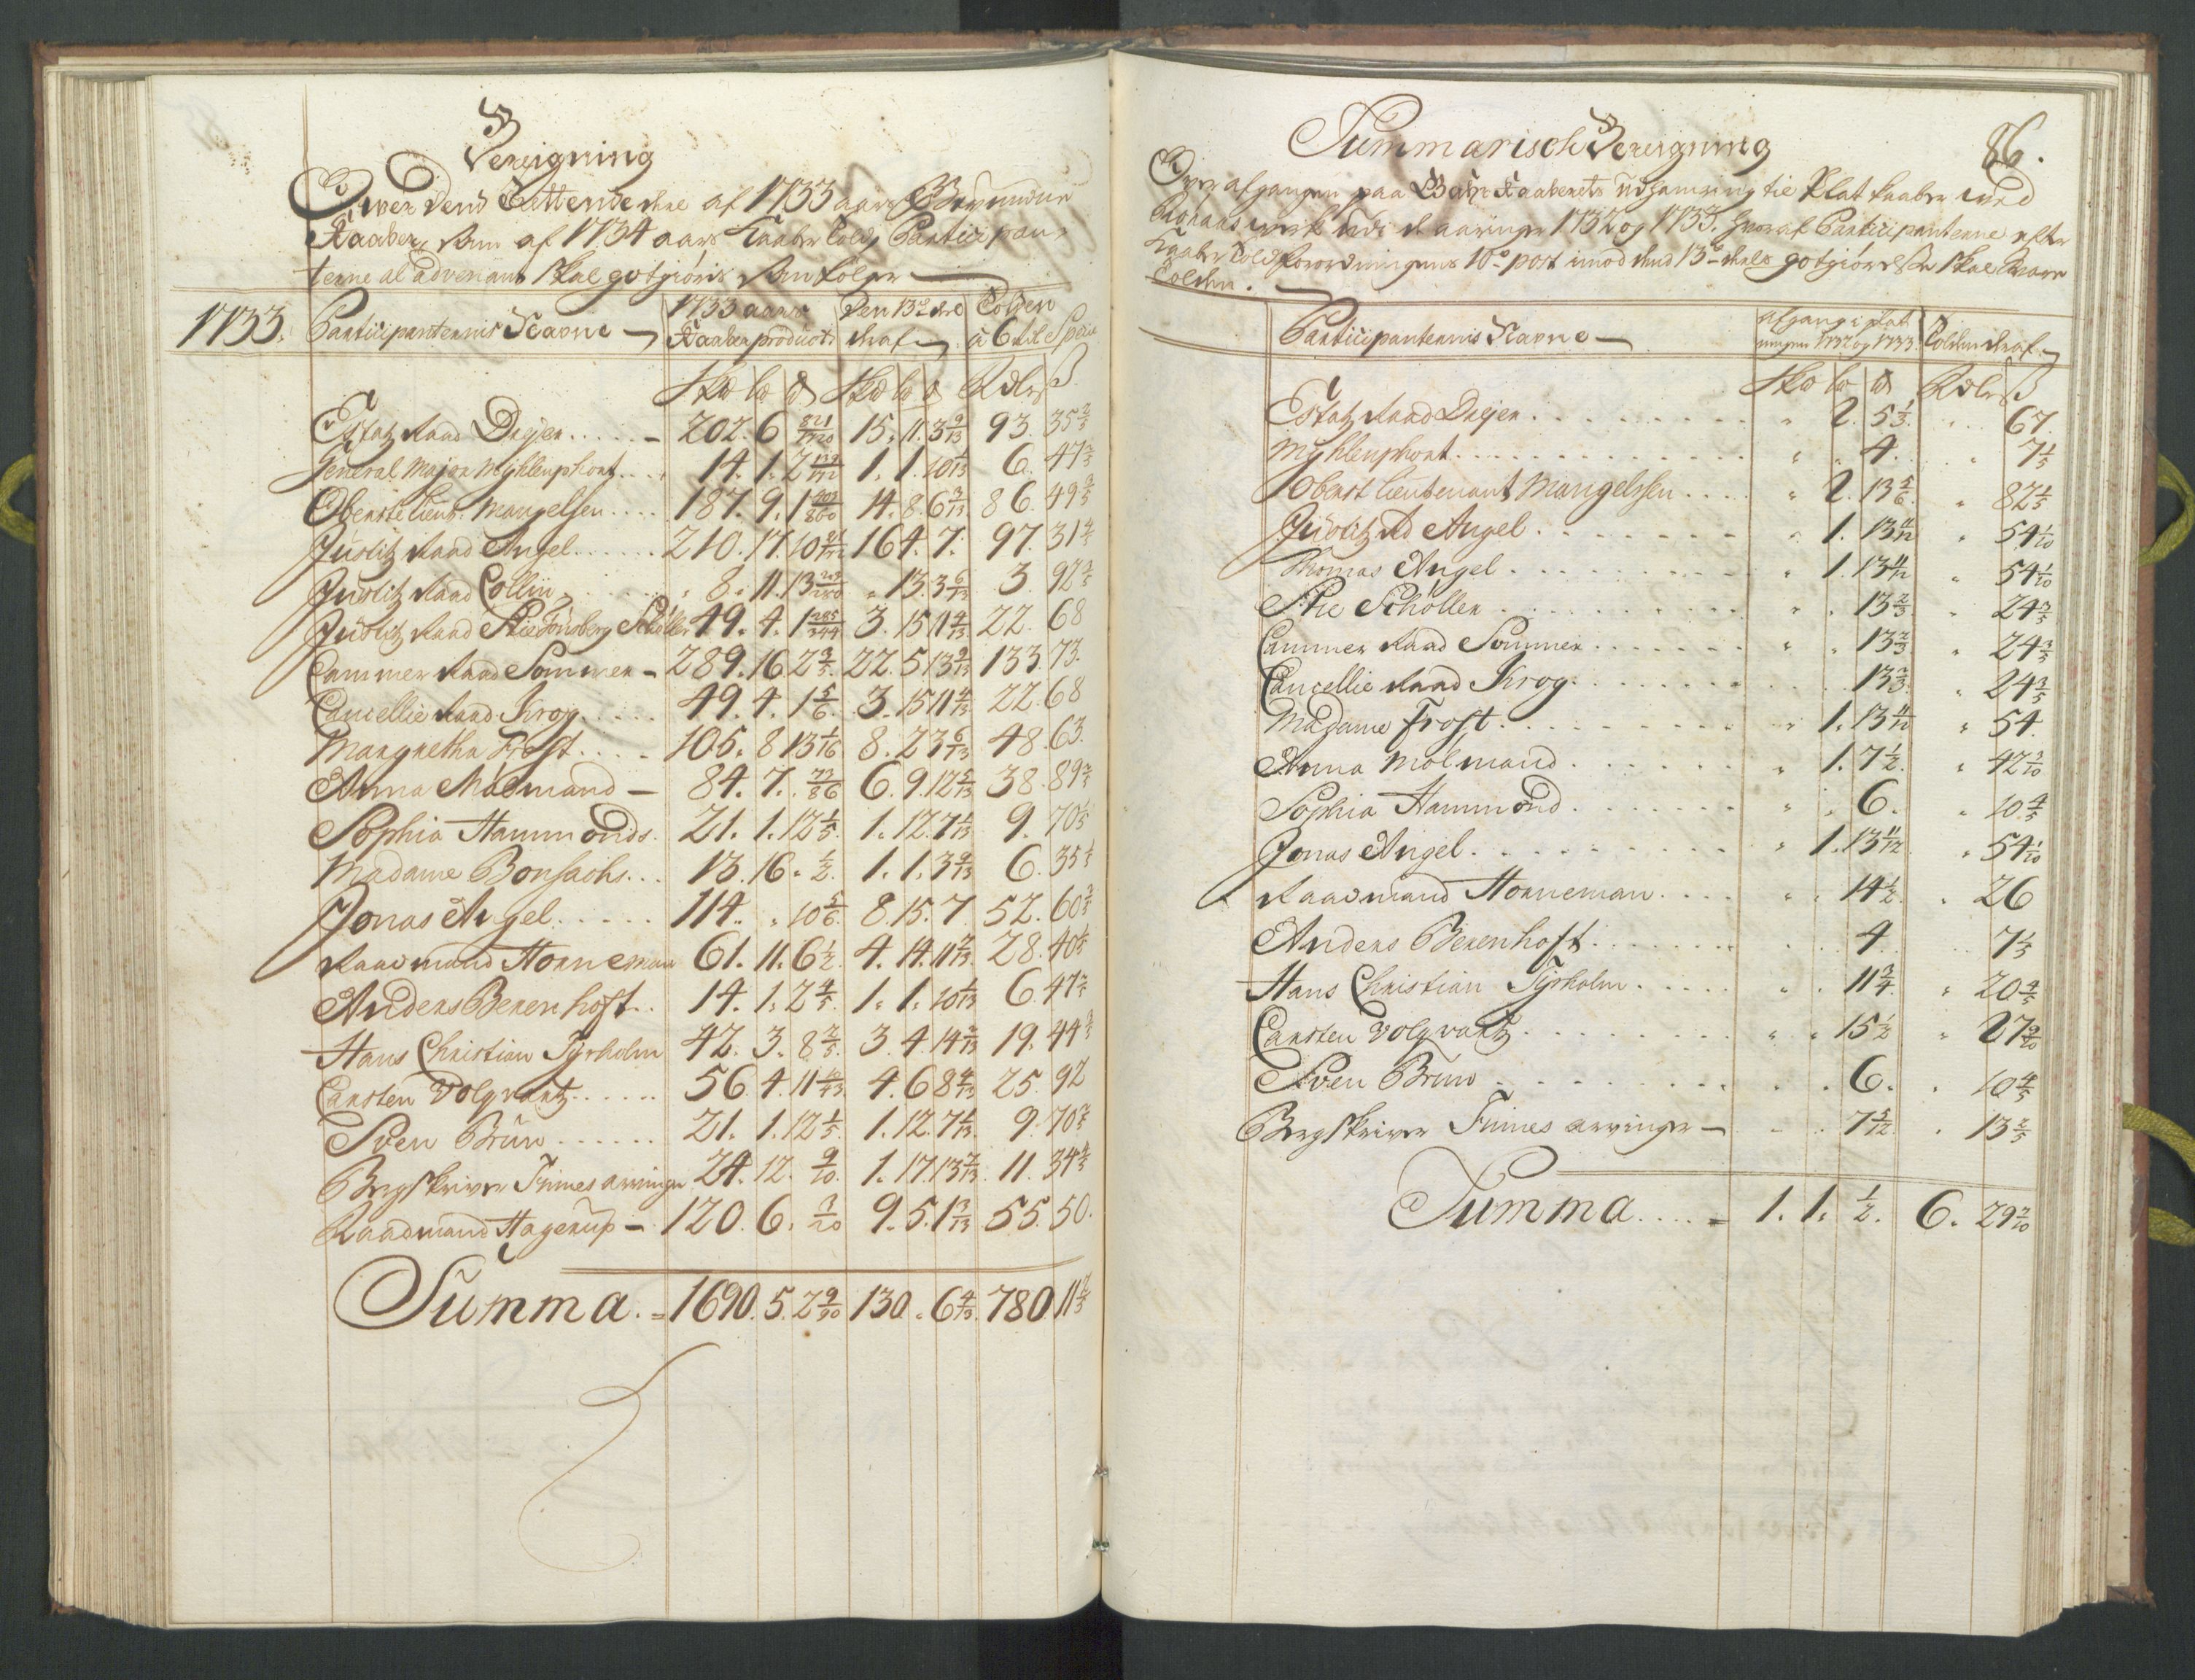 Bereigning
Over dend Tættende deel af 1733 aars
Kaaber, som af 1734 aars Kaaber Told, Participan-
terne al advenant skal gotgiöris som fölger
1733. Participanternis Nafne 1733 aars Kaaber product Den 13de deel deraf Tolden à 6 dl
Etatz Raad Dreyer 202. 6 15. 11. 3 9/13 93. 35 2/5
General Major Myhlenphort 14. 1. 2 1. 1. 10 1/13 6. 47 2/5
Oberste Lieut: Mangelsen 187. 9. 1 14. 8. 6 3/13 86. 49 3/5
Justitz Raad Angel 210. 17. 10 16 4. 7. 97. 31 4/5
Justitz Raad Collin 8. 11. 13 13. 3 6/13 3. 92 2/5
Justitz Raad Stie Tonsberg Schöller 49. 4. 1 285/344 3. 15 11 4/13 22. 68
Cammer Raad Sommer 289. 16 2 3/5 22. 5 13 9/13 133. 73.
Cancellie Raad Krog 49. 4. 1 5/6 3. 15 11 4/13 22. 68
Margretha Frost 105. 8 13 1/16 8. 2 3 6/13 48. 63.
Anna Mölmand 84. 7. 77/86 6. 9. 12 5/13 38. 89 2/5
Sophia Hammonds 21. 1. 12 1/5 1. 12. 7 1/13 9. 70
Madame Bonsachs 13. 16. 1/2 1. 1. 3 9/13 6. 35 1/5
Jonas Angel 114. . 10 5/6 8. 15. 7 52. 60 2/5
Raadmand Horneman 61. 11. 6 1/2 4. 14. 11 2/13 28. 40 4/5
Anders Berenhoft 14. 1. 2 4/5 1. 1. 10 1/13 6. 47 2/5
Hans Christian Tyrholm 42. 3. 8 2/5 3. 4. 14 2/13 19. 44 3/5
Carsten Volqvartz 56. 4. 11 4. 6 8 4/13 25. 92
Sven Brun 21. 1. 12 1/5 1. 12. 7 1/13 9. 70 2/5
Bergskriver Finnes arvinger 24. 12. 9/10 1. 17. 13 2/13 11. 34 4/5
Raadmand Hagerup 120. 6. 3/20 9. 5. 1 3/13 55. 50.
Summa 1690. 5. 2 9/20 130. 6 4/13 780. 11 2/5
86.
Summarisch Bereigning
Over afgangen paa Gahr Kaaberets udhamring til Plat kaaber ved
udi de aaringer 1732 og 1733. hvoraf Participanterne efter
Kaaber Told forordningens 10de post imod dend 13de deels gotgiörelse skal svare
Tolden.
Participanternis Nafne afgang i plat 1732 og 1733. Tolden deraf
Etatz Raad Dreyer 2. 5 1/3 67.
Myhlenphort 4. 7 1/5
Oberst Lieutenant Mangelssen 2. 13 5/6 82 1/5
Justitz Rd Angel 1. 13 11/12 54 1/10
Thomas Angel 1. 13 11/12 54 1/10
Stie Schöller 13 2/3 24 3/5
Cammer Raad Sommer 13 2/3 24 3/5
Cancellie Raad Krog 13 2/3 24 3/5
Madame Frost 1. 13 11/12 54.
Anna Mölmand 1. 7 1/2 42 3/10
Sophia Hammond 6. 10 4/5
Jonas Angel 1. 13 11/12 54 1/10
Raadmand Horneman 14 1/2 26
Anders Berenhoft 4. 7 1/5
Hans Christian Tyrholm 11 3/4 20 4/5
Carsten Volqvartz 15 1/2 27 9/10
Sven Brun 6. 10 4/5
Bergskriver Finnes arvinger 7 5/12 13 2/5
Summa 1. 1. 1/2. 6. 29 7/10